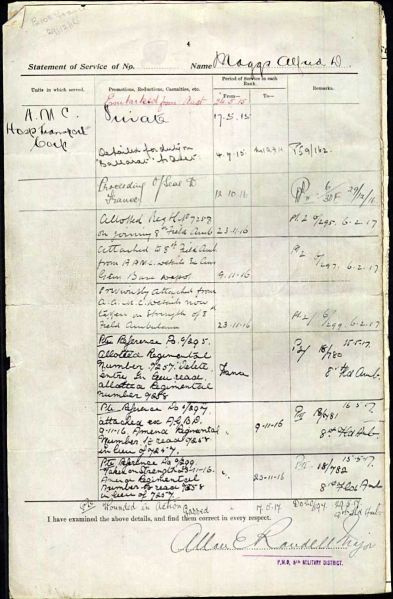 4
Statement of Service of No. Name Maggs Alfred D.
Units in which served.
Promotions, Reductions, Casualties, etc.
Period of Service in each Rank.
From— To—
Remarks.
Embarked from Aust 26.5.15
A.M.C.
Hosp Transport
Corp
Private 17.5.15
Detailed for duty on
"Ballarat" 4.9.15
Proceeding O/Seas
France 12.10.16
Allotted Reg No 7258
on joining 8th Field Amb 23-11-16 6.2.17
Attached to 8th Field Amb
from A.A.M.C. details
Gen Base Depot 9-11-16 6.2.17
Previously attached from
A.A.M.C. details now
taken on strength of 8th
Field Ambulance 23-11-16 6.2.17
Pte Reference Po 6/295.
Allotted Regimental
Number 7257. Delete
entry in Gen read.
allotted Regimental
Number 7258 France 18/780 15.5.17
8th Fld Amb.
Pte Reference Po 6/297
attached ex A.G.B.D.
9-11-16. Amend Regimental
Number to read 7258
in lieu of 7257. 9-11-16 18/781 16.5.17
8th Fld Amb
Pte Reference Po 6/299
Taken on strength 23-11-16.
Amend Regimental
Number to read 7258
in lieu of 7257. 23-11-16 18/782 15.5.17
8th Fld Amb
Pte Wounded in Action
Gassed 17.5.17
I have examined the above details, and find them correct in every respect.
Allan E Randell Major
P.M.O. 5TH MILITARY DISTRICT.